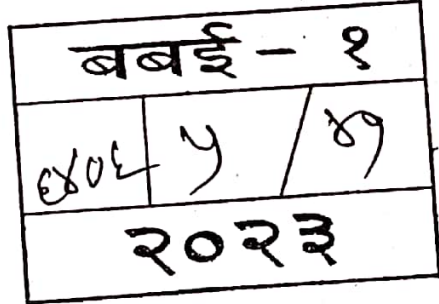 बबई - १
६४०६ ५ / ४१
२०२३